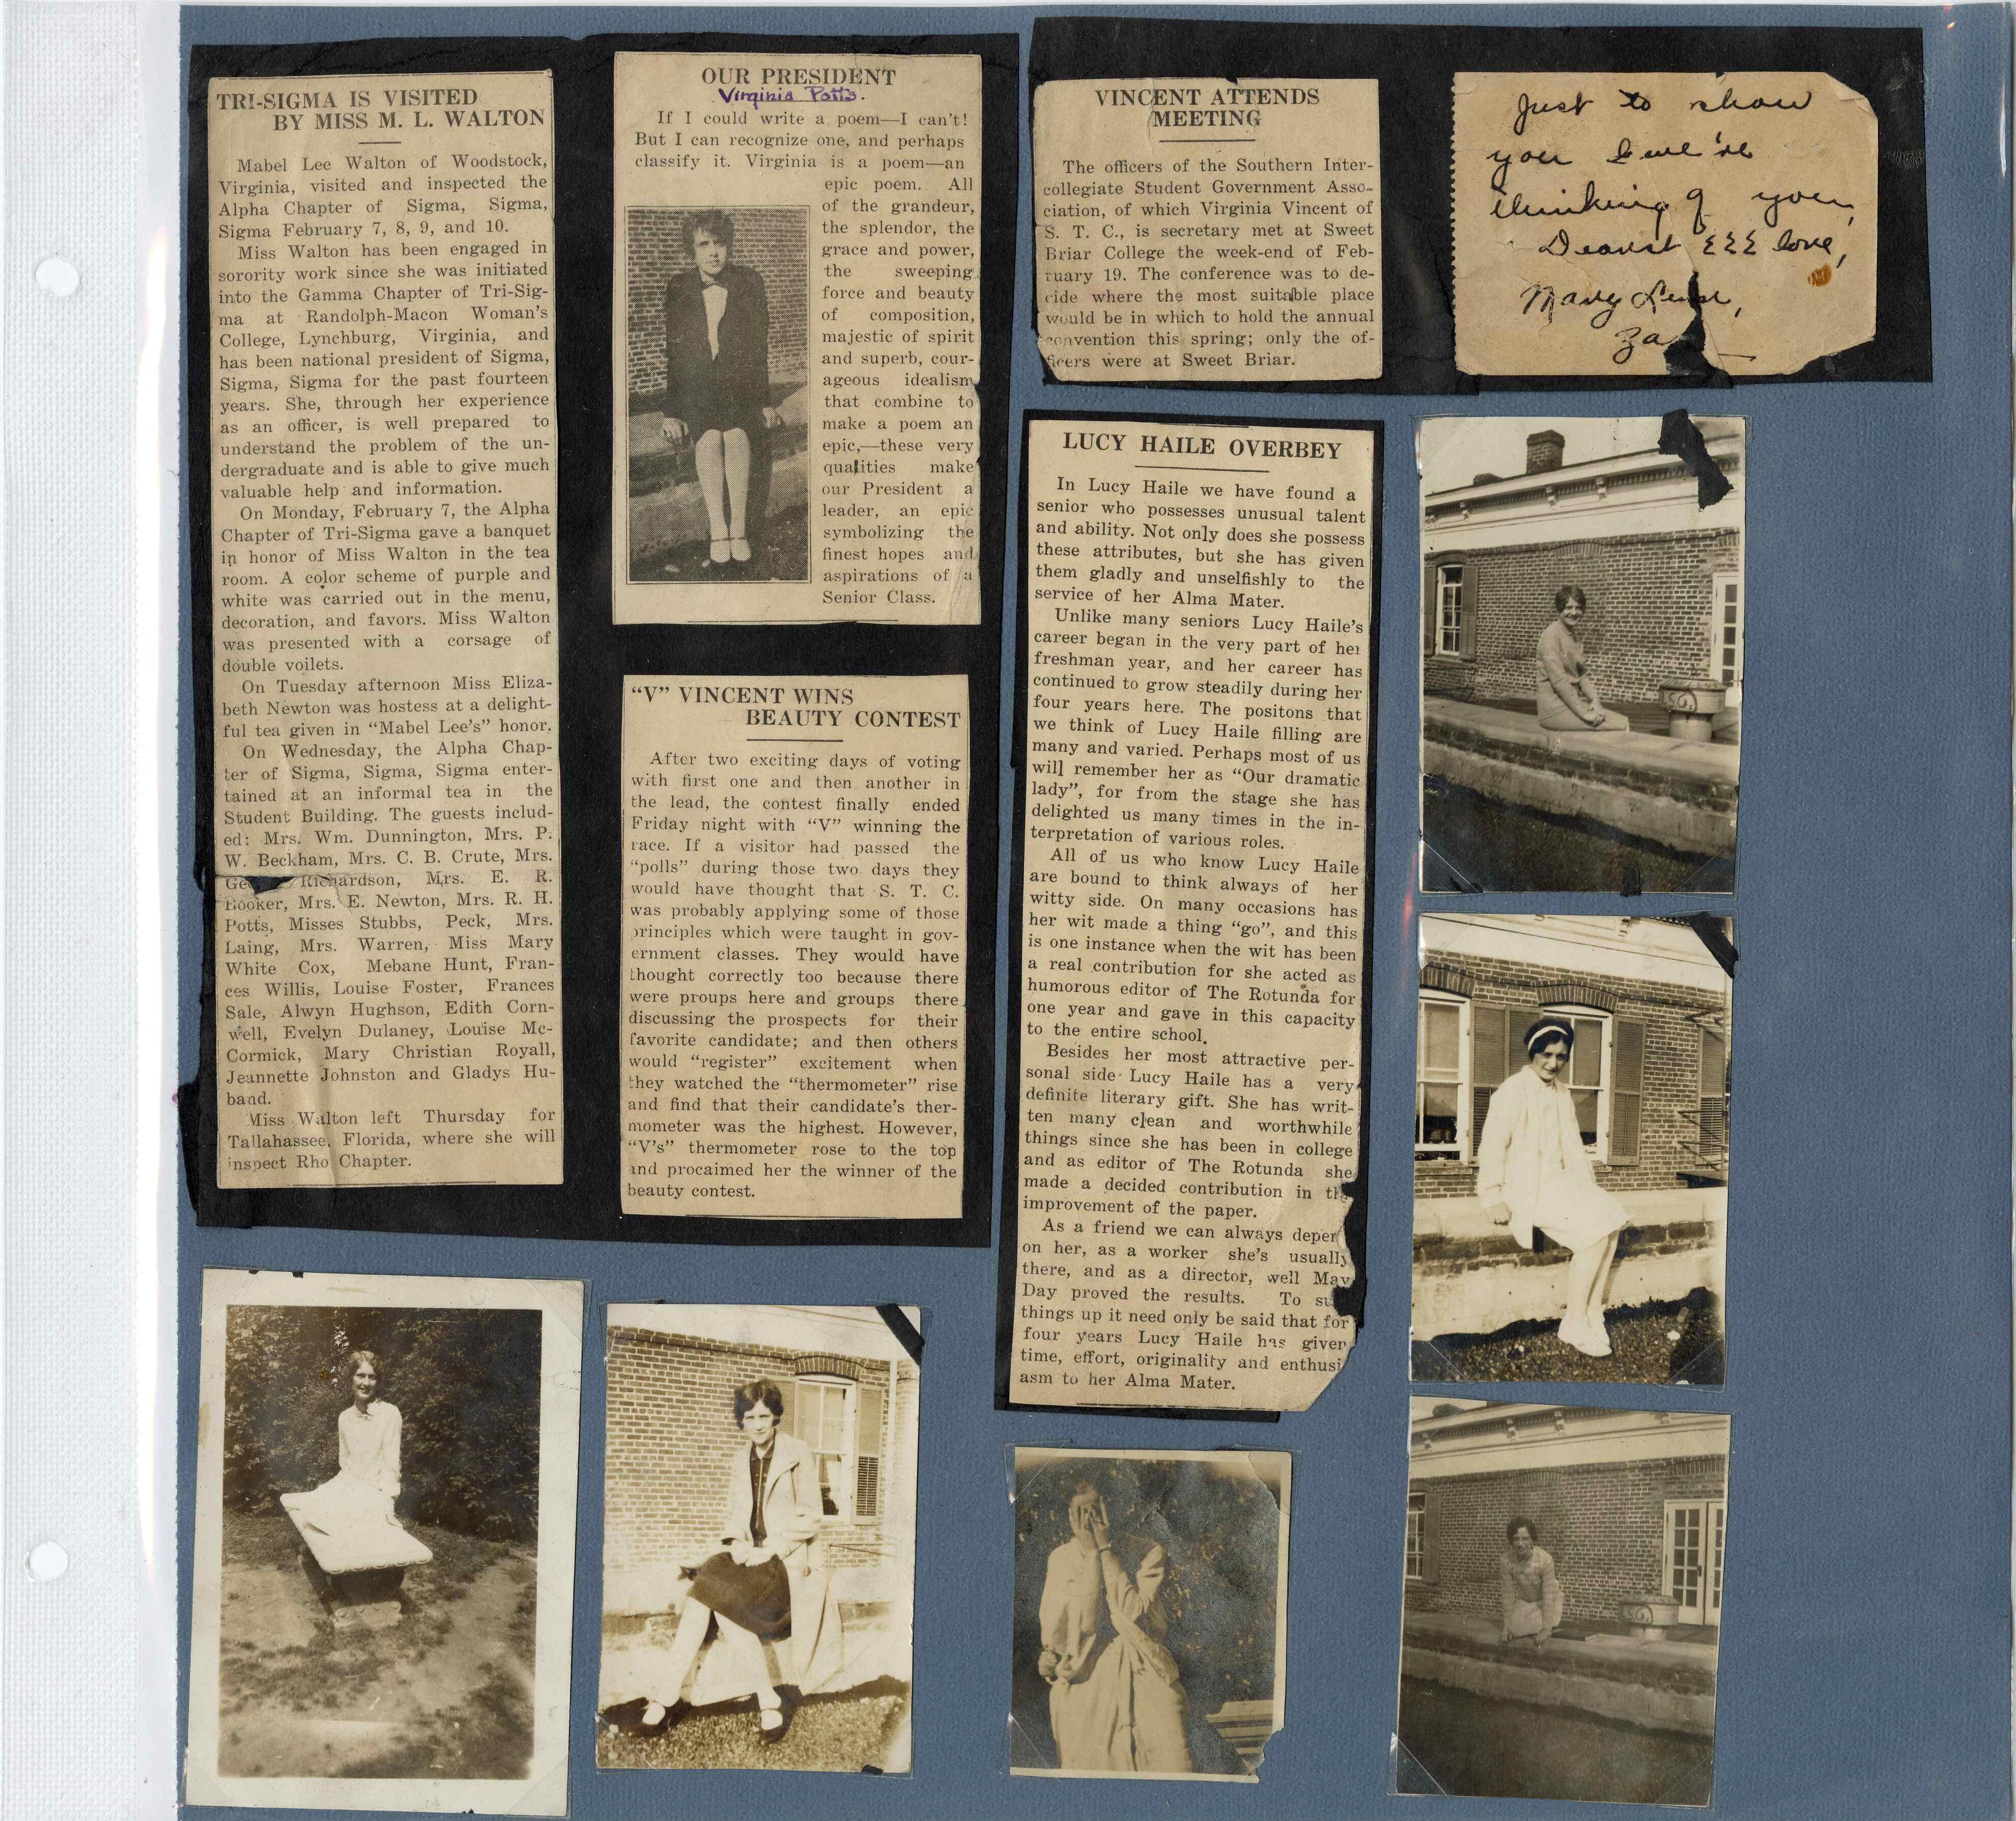 TRI-SIGMA IS VISITED
BY MISS M. L. WALTON
Mabel Lee Walton of Woodstock,
Virginia, visited and inspected the
Alpha Chapter of Sigma, Sigma,
Sigma February 7, 8, 9, and 10.
Miss Walton has been engaged in
sorority work since she was initiated
into the Gamma Chapter of Tri-Sig-
ma at Randolph-Macon Woman's
College, Lynchburg, Virginia, and
has been national president of Sigma,
Sigma, Sigma for the past fourteen
years. She, through her experience
as an officer, is well prepared to
understand the problem of the un-
dergraduate and is able to give much
valuable help and information.
On Monday, February 7, the Alpha
Chapter of Tri-Sigma gave a banquet
in honor of Miss Walton in the tea
room. A color scheme of purple and
white was carried out in the menu,
decoration, and favors. Miss Walton
was presented with a corsage of
double voilets.
On Tuesday afternoon Miss Eliza-
beth Newton was hostess at a delight-
ful tea given in "Mabel Lee's" honor.
On Wednesday, the Alpha Chap-
ter of Sigma, Sigma, Sigma enter-
tained at an informal tea in the
Student Building. The guests includ-
ed: Mrs. Wm. Dunnington, Mrs. P.
W. Beckham, Mrs. C. B. Crute, Mrs.
Richardson, Mrs. E. R.
Booker, Mrs. E. Newton, Mrs. R. H.
Potts, Misses Stubbs, Peck, Mrs.
Laing, Mrs. Warren, Miss Mary
White Cox, Mebane Hunt, Fran-
ces Willis, Louise Foster, Frances
Sale, Alwyn Hughson, Edith Corn-
well, Evelyn Dulaney, Louise Mc-
Cormick, Mary Christian Royall,
Jeannette Johnston and Gladys Hu-
band.
Miss Walton left Thursday for
Tallahassee, Florida, where she will
inspect Rho Chapter.
OUR PRESIDENT
Virginia Potts.
If I could write a poem—I can't!
But I can recognize one, and perhaps
classify it. Virginia is a poem—an
epic poem. All
of the grandeur,
the splendor, the
grace and power,
the sweeping
force and beauty
of composition,
majestic of spirit
and superb, cour-
ageous idealism
that combine to
make a poem an
epic,—these very
qualities make
our President a
leader, an epic
symbolizing the
finest hopes and
aspirations of a
Senior Class.
"V" VINCENT WINS
BEAUTY CONTEST
After two exciting days of voting
with first one and then another in
the lead, the contest finally ended
Friday night with "V" winning the
race. If a visitor had passed the
"polls" during those two days they
would have thought that S. T. C.
was probably applying some of those
principles which were taught in gov-
ernment classes. They would have
thought correctly too because there
were proups here and groups there
discussing the prospects for their
favorite candidate; and then others
would "register" excitement when
they watched the "thermometer" rise
and find that their candidate's ther-
mometer was the highest. However,
"V's" thermometer rose to the top
and procaimed her the winner of the
beauty contest.
VINCENT ATTENDS
MEETING
The officers of the Southern Inter-
collegiate Student Government Asso-
ciation, of which Virginia Vincent of
S. T. C., is secretary met at Sweet
Briar College the week-end of Feb-
ruary 19. The conference was to de-
cide where the most suitable place
would be in which to hold the annual
convention this spring; only the of-
ficers were at Sweet Briar.
Just to show
you we're
thinking of you,
Dearest ΣΣΣ love,
Mary
LUCY HAILE OVERBEY
In Lucy Haile we have found a
senior who possesses unusual talent
and ability. Not only does she possess
these attributes, but she has given
them gladly and unselfishly to the
service of her Alma Mater.
Unlike many seniors Lucy Haile's
career began in the very part of her
freshman year, and her career has
continued to grow steadily during her
four years here. The positons that
we think of Lucy Haile filling are
many and varied. Perhaps most of us
will remember her as "Our dramatic
lady", for from the stage she has
delighted us many times in the in-
terpretation of various roles.
All of us who know Lucy Haile
are bound to think always of her
witty side. On many occasions has
her wit made a thing "go", and this
is one instance when the wit has been
a real contribution for she acted as
humorous editor of The Rotunda for
one year and gave in this capacity
to the entire school.
Besides her most attractive per-
sonal side Lucy Haile has a very
definite literary gift. She has writ-
ten many clean and worthwhile
things since she has been in college
and as editor of The Rotunda she
made a decided contribution in the
improvement of the paper.
As a friend we can always depen
on her, as a worker she's usually
there, and as a director, well May
Day proved the results. To su
things up it need only be said that for
four years Lucy Haile has given
time, effort, originality and enthusi
asm to her Alma Mater.